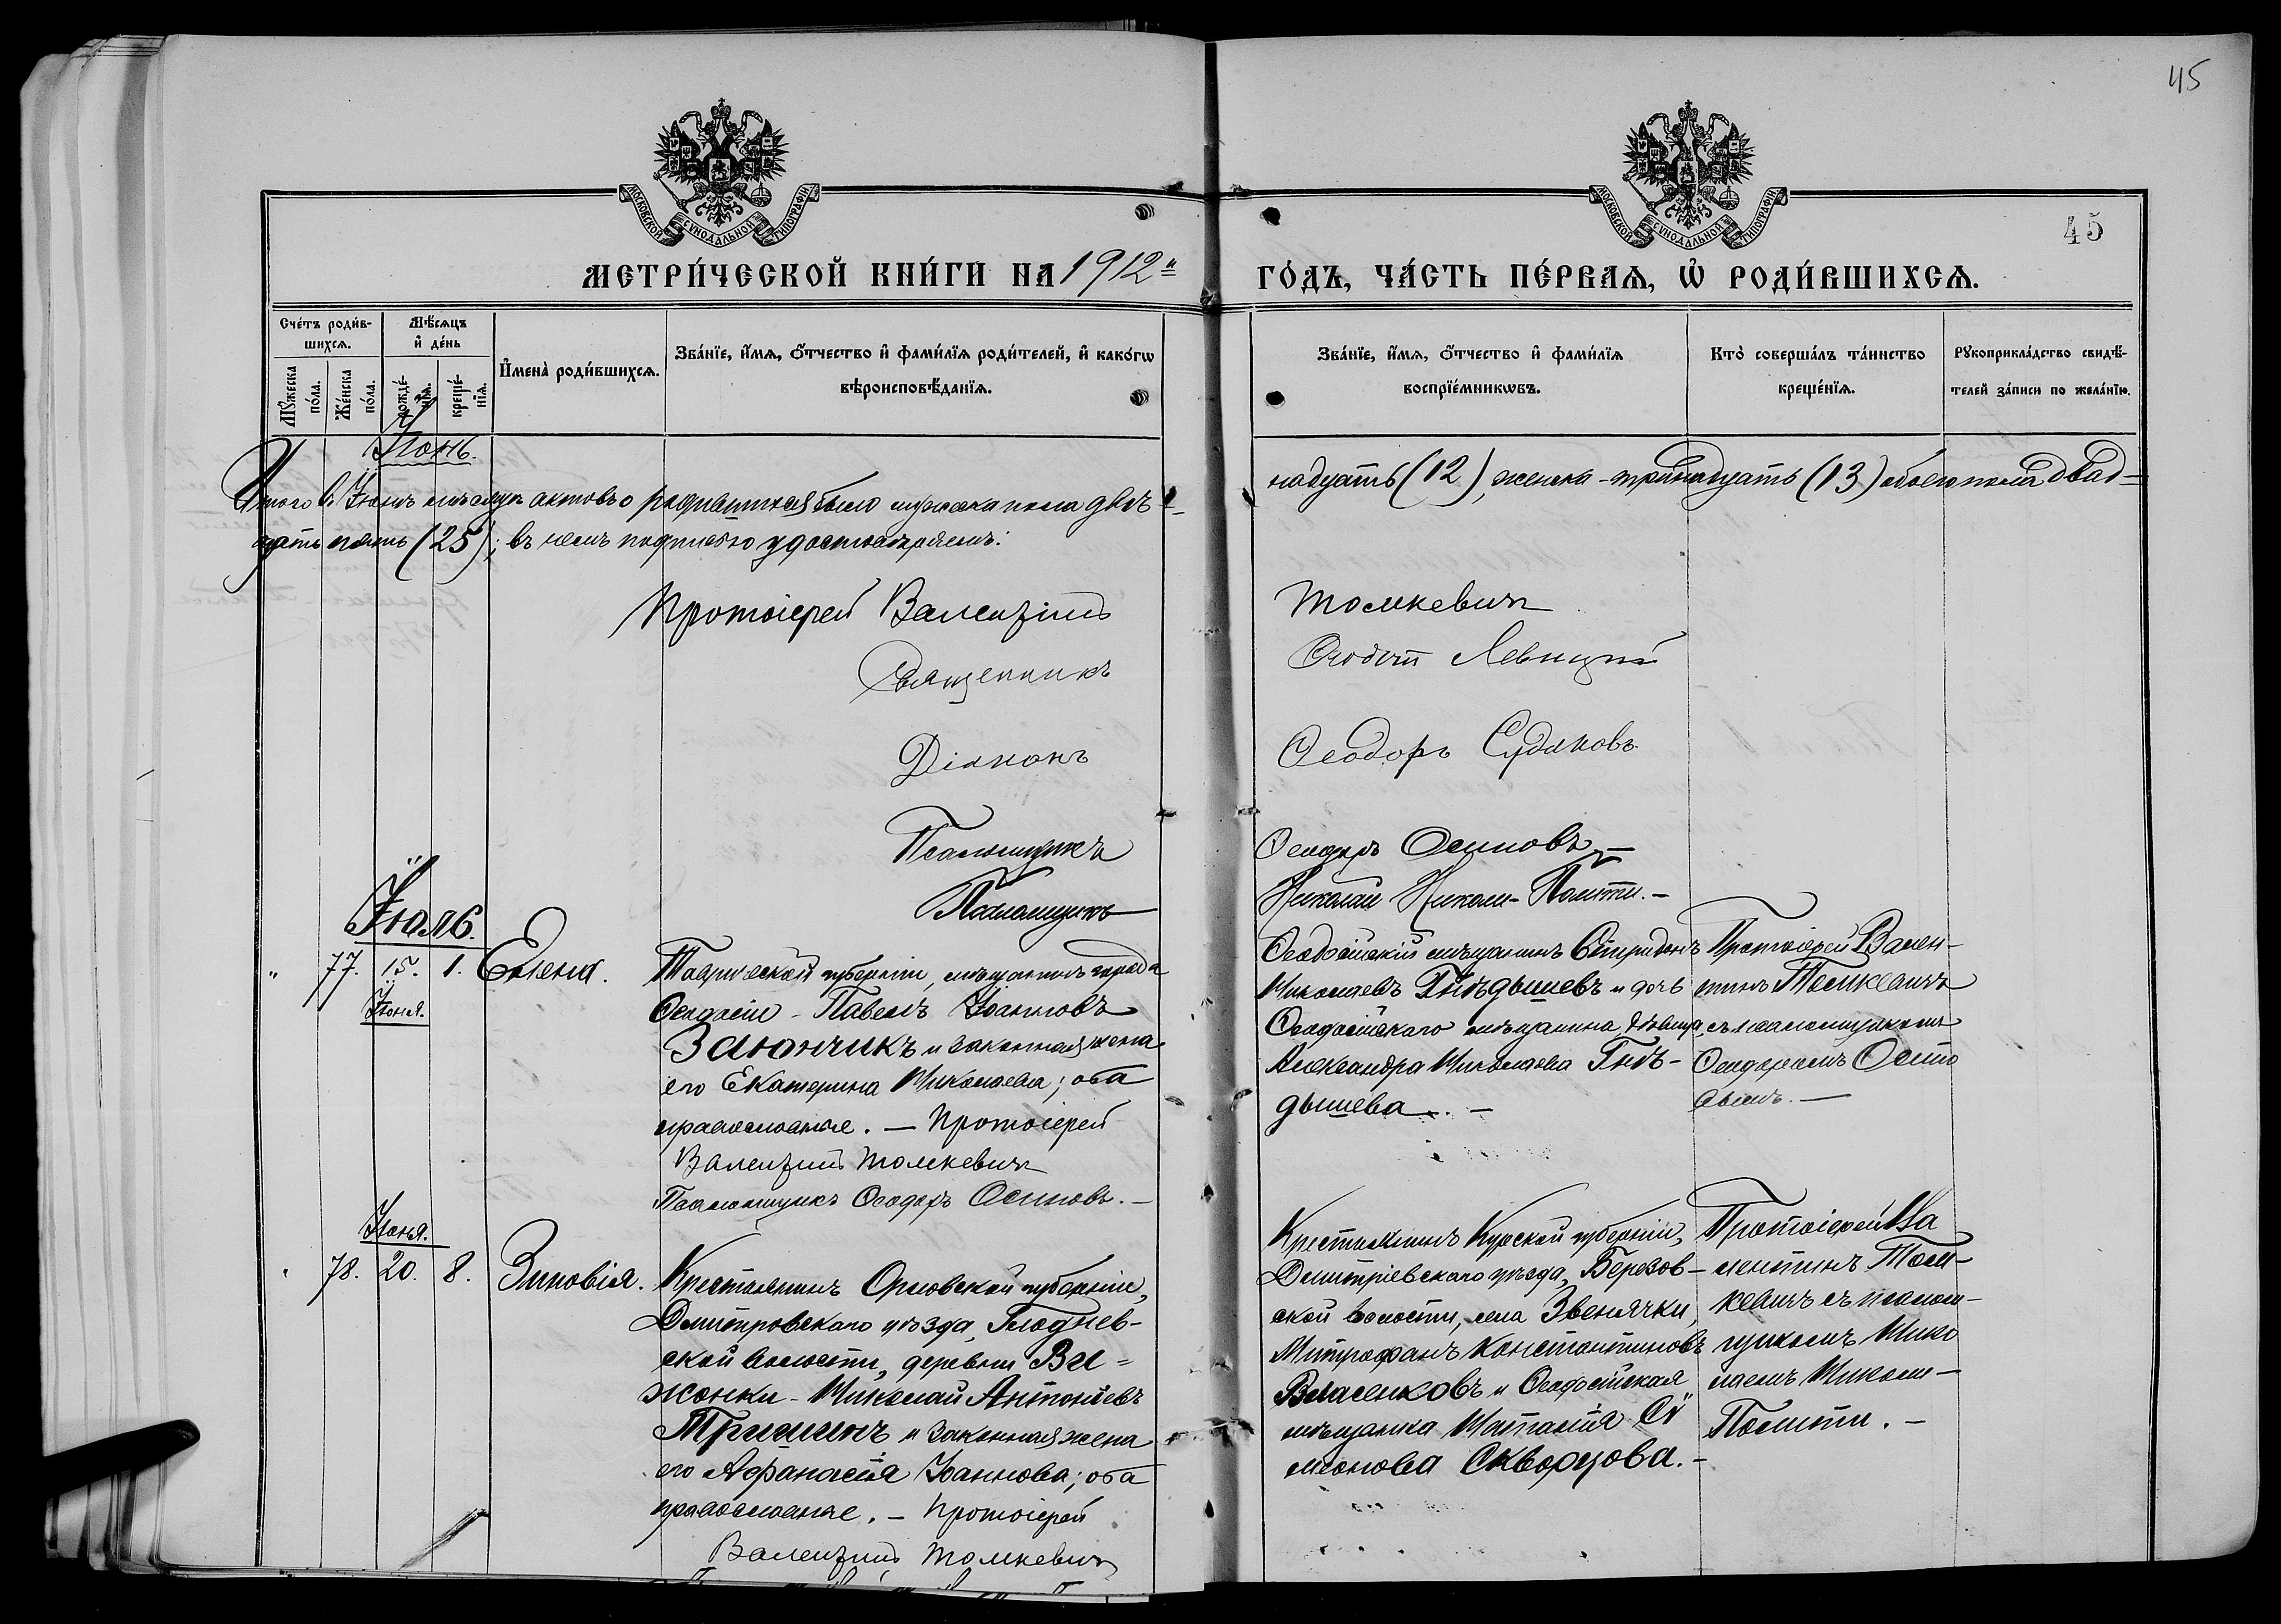 45
МОСКОВСКОЙ СѴНОДАЛЬНОЙ ТИПОГРАФІИ
МОСКОВСКОЙ СѴНОДАЛЬНОЙ ТИПОГРАФІИ
45
МЕТРИ́ЧЕСКОЙ КНИ́ГИ НА 1912й
ГО́ДЪ, ЧА́СТЬ ПЕ́РВАѦ, Ѡ҆ РОДИ́ВШИХСѦ.
Сче́тъ роди́в-
шихсѧ.
Мꙋ́жеска по́ла.
Же́нска по́ла.
Мѣ́сѧцъ
и҆ де́нь
рожде́-нїѧ.
креще́-нїѧ.
И҆мена̀ роди́вшихсѧ.
Зва́нїе, и҆́мѧ, ѻ҆́тчество и҆ фами́лїѧ роди́телей, и҆ како́гѡ
вѣроисповѣ́данїѧ.
Зва́нїе, и҆́мѧ, ѻ҆́тчество и҆ фами́лїѧ
воспрїе́мникѡвъ.
Кто̀ соверша́лъ та́инство
креще́нїѧ.
Рꙋкоприкла́дство свидѣ́-
телей за́писи по жела́нїю.
Іюнь.
Итого въ Іюнѣ мѣсяцѣ актовъ о родившихся было мужеска пола двѣ-
надцать (12), женска - тринадцать (13) обоего пола двад=
цать пять (25); въ чемъ подписью удостовѣряемъ:
Протоіерей Валентинъ
Томкевичъ
Священникъ
Ѳеодотъ Левицкій
Діаконъ
Ѳеодоръ Судаковъ
Псаломщикъ
Ѳеодоръ Осиповъ.—
Псаломщикъ
Николай Николи-Политти.—
Іюль.
" 77. 15. 1. Елена.
Іюня.
Таврической губерніи, мѣщанинъ города
Ѳеодосіи - Павелъ Іоанновъ
Заіончикъ и законная жена
его Екатерина Николаева; оба
православные. — Протоіерей
Валентинъ Томкевичъ
Псаломщикъ Ѳеодоръ Осиповъ.—
Ѳеодосійскій мѣщанинъ Спиридонъ
Николаевъ Гнѣдышевъ и дочь
Ѳеодосійскаго мѣщанина, дѣвица,
Александра Николаева Гнѣ-
дышева. —
Протоіерей Вален-
тинъ Томкевичъ
съ псаломщикомъ
Ѳеодоромъ Осипо
вымъ. —
Іюня.
" 78. 20. 8. Зиновія.
Крестьянинъ Орловской губерніи,
Дмитровскаго уѣзда, Глоднев-
ской волости, деревни Ви=
жонки - Николай Антоніевъ
Тришинъ и законная жена
его Афанасія Іоаннова; оба
православные. — Протоіерей
Валентинъ Томкевичъ
Крестьянинъ Курской губерніи,
Дмитріевскаго уѣзда, Березов-
ской волости, села Звенячки,
Митрофанъ Константиновъ
Власенковъ и Ѳеодосійская
мѣщанка Наталія Си
меонова Скворцова. —
Протоіерей Ва
лентинъ Том-
кевичъ съ псалом-
щикомъ Нико
лаемъ Николи-
Политти. —